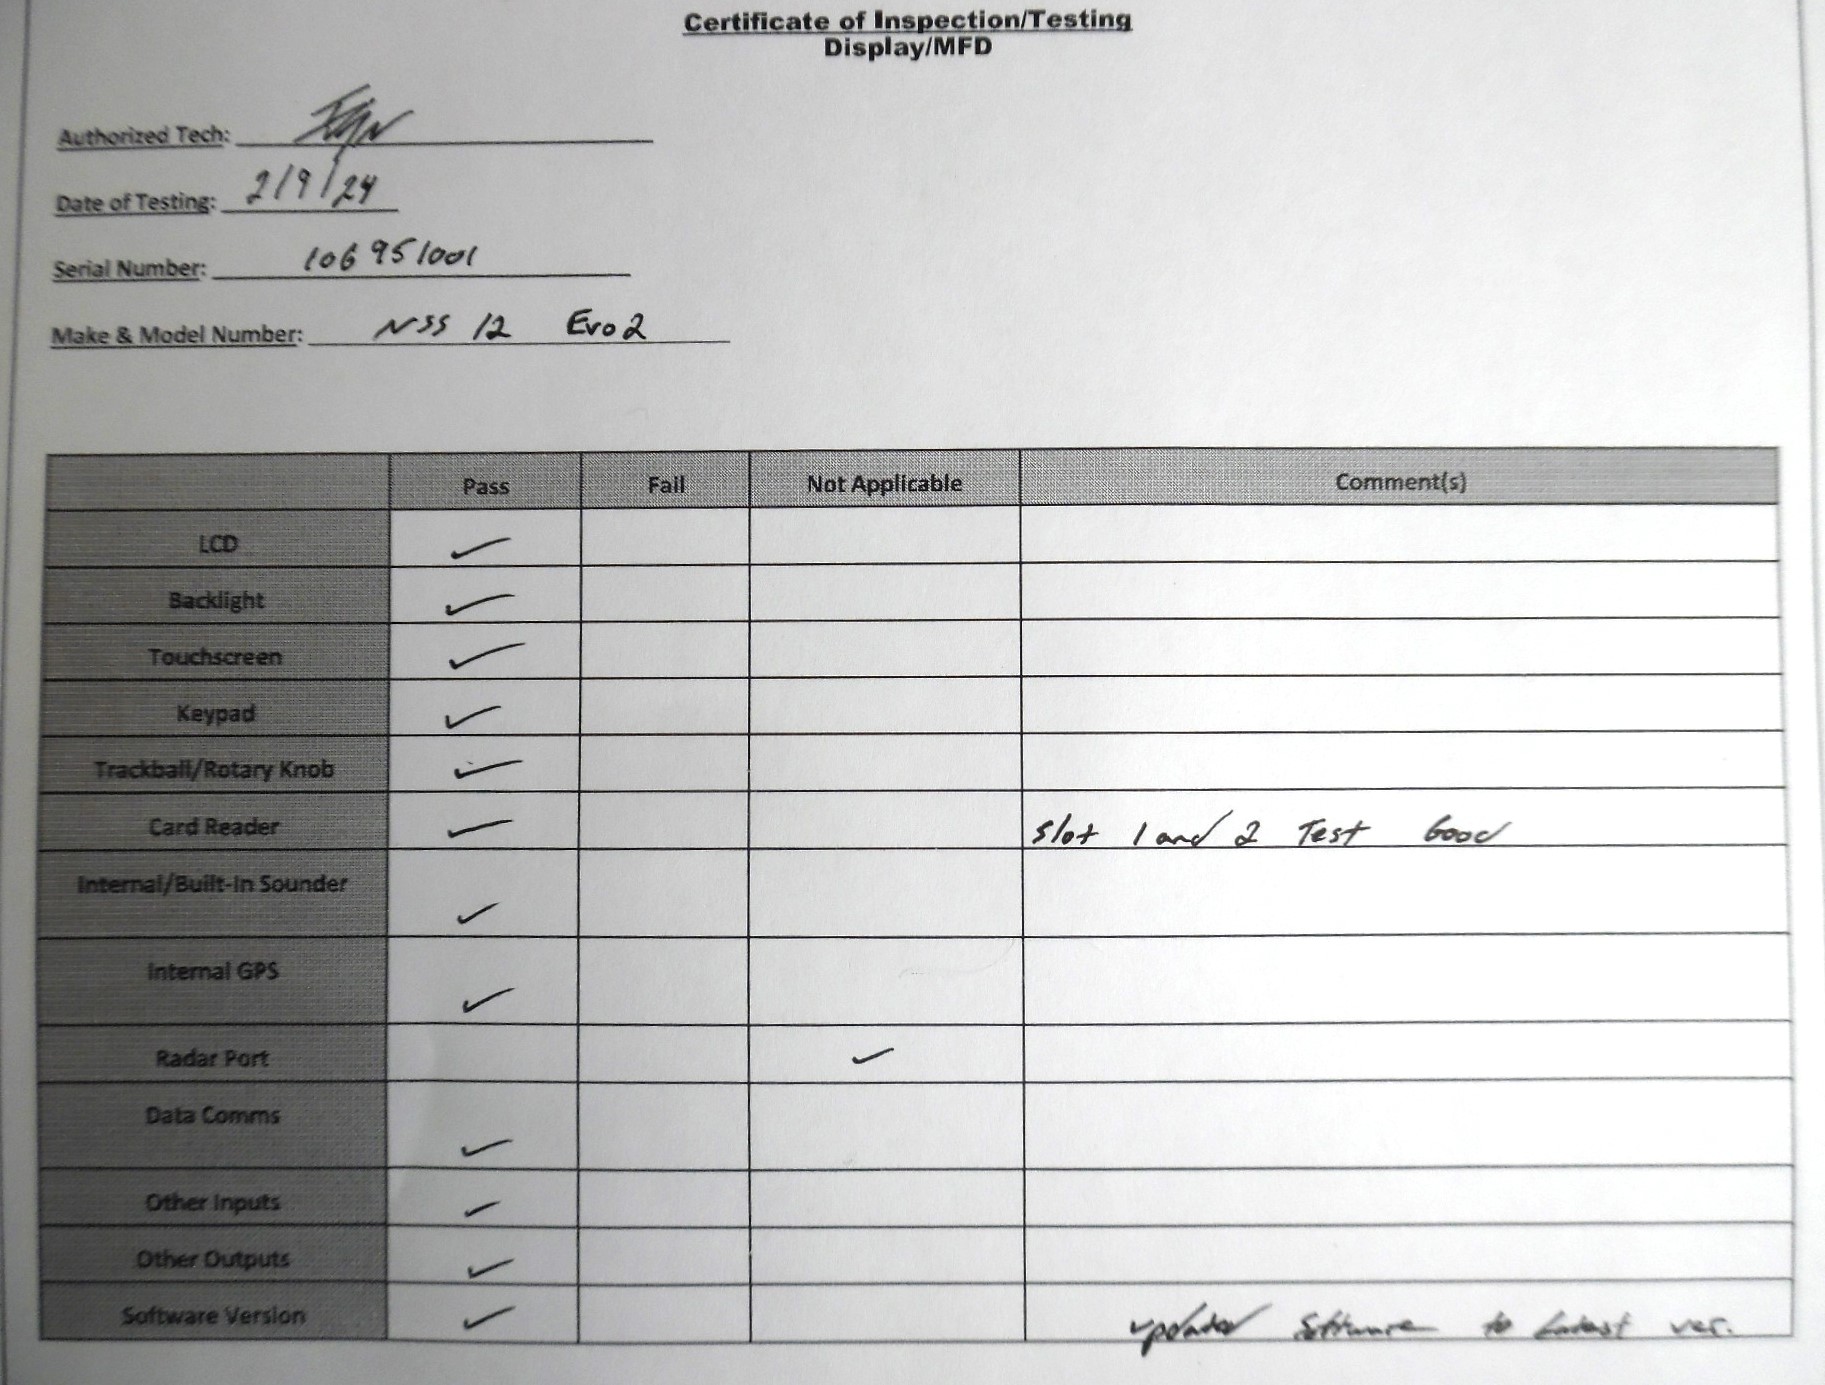 Certificate of Inspection/Testing
Display/MFD
Authorized Tech:
Date of Testing: 2/9/24
Serial Number: 106951001
Make & Model Number: NSS 12 Evo2
Pass Fail Not Applicable Comment(s)
LCD ✓
Backlight ✓
Touchscreen ✓
Keypad ✓
Trackball/Rotary Knob ✓
Card Reader ✓ Slot 1 and 2 Test Good
Internal/Built-in Sounder ✓
Internal GPS ✓
Radar Port ✓
Data Comms ✓
Other Inputs ✓
Other Outputs ✓
Software Version ✓ updated Software to Latest ver.